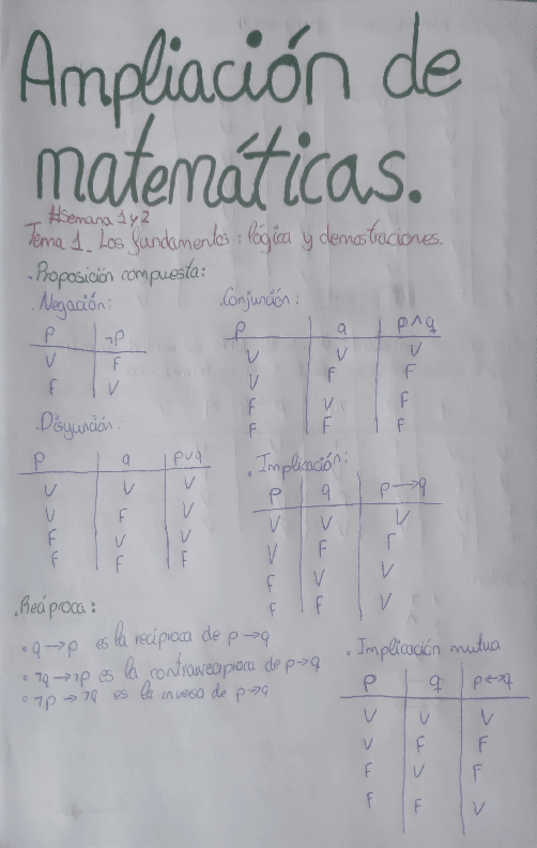 Ampliación de
matemáticas.
#Semana 1 y 2
Tema 1_ Los fundamentos: lógica y demostraciones.
. Proposición compuesta:
. Negación:
P ¬P
V F
F V
. Conjunción:
P q p ∧ q
V V V
V F F
F V F
F F F
. Disyunción:
P q p ∨ q
V V V
V F V
F V V
F F F
. Implicación:
P q p → q
V V V
V F F
F V V
F F V
. Recíproca:
• q → p es la recíproca de p → q
• ¬q → ¬p es la contrarrecíproca de p → q
• ¬p → ¬q es la inversa de p → q
. Implicación mutua
P q p ↔ q
V V V
V F F
F V F
F F V